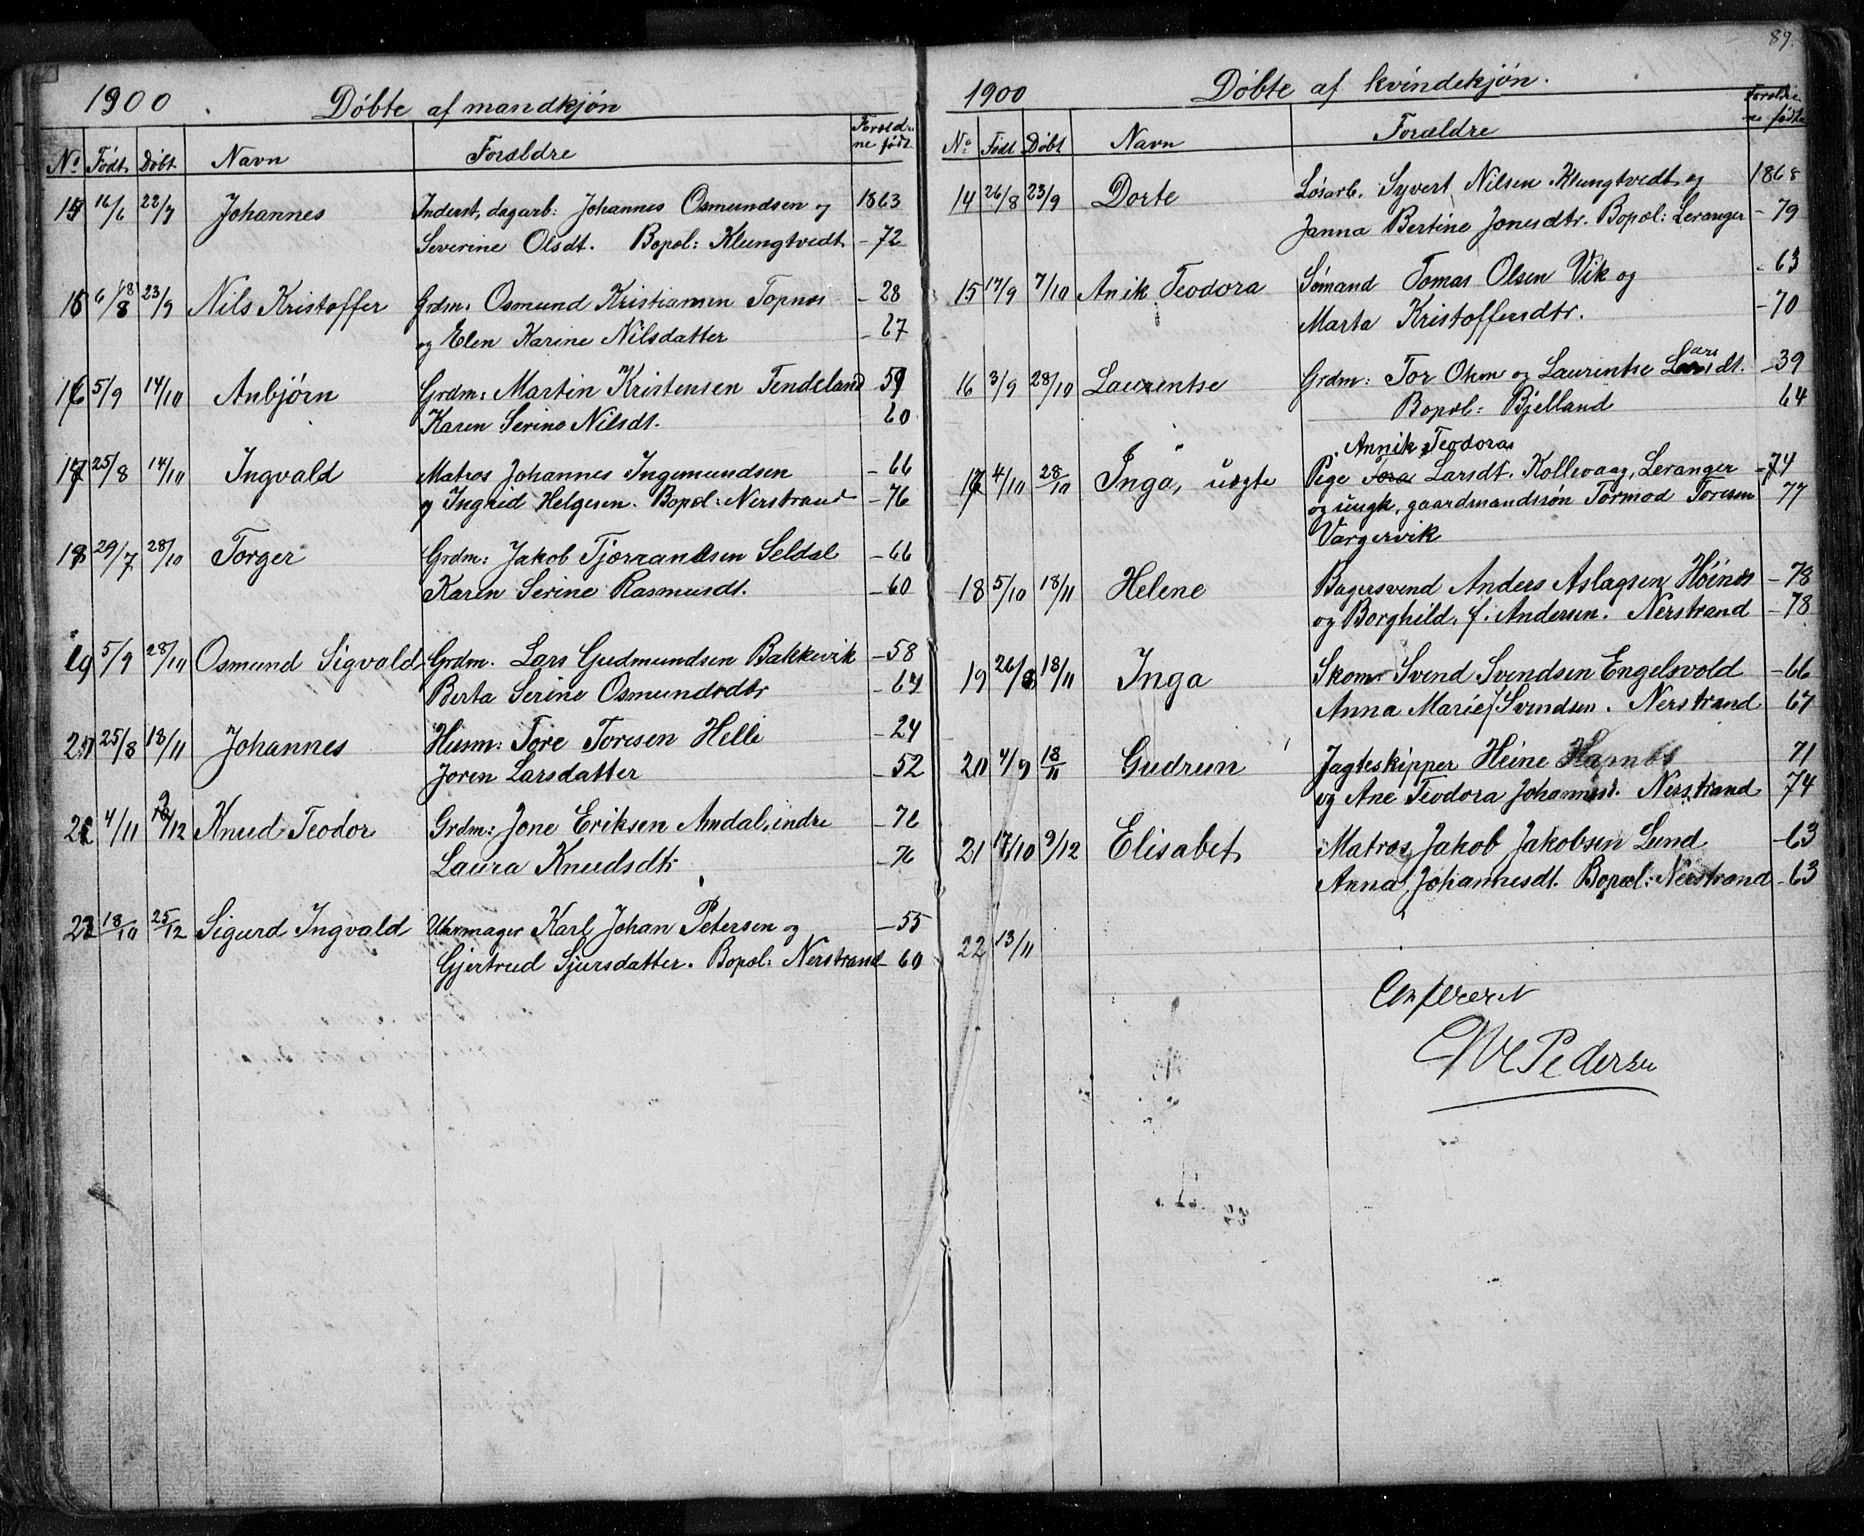 1900 Døbte af mandkjøn
No Født Døbt Navn Forældre Forældrene født
16/6 22/7 Johannes Inderst, dagarb: Johannes Osmundsen og 1863
Severine Olsdt. Bopæl: Klungtvedt -72
23/9 Nils Kristoffer Grdm: Osmund Kristiansen Topnes -28
og Elen Karine Nilsdatter -67
16 5/9 14/10 Anbjørn Grdm: Martin Kristensen Tendeland 59
Karen Serine Nilsdt. 60
17 25/8 14/10 Ingvald Matros Johannes Ingemundsen -66
og Ingrid Helgesen. Bopæl: Nerstrand -76
18 29/7 28/10 Torger Grdm: Jakob Tjørrandsen Seldal -66
Karen Serine Rasmusdt. -60
19 5/9 28/10 Osmund Sigvald Grdm. Lars Gudmundsen Bakkevik -58
Berta Serine Osmundsdtr
20 25/8 18/11 Johannes Husm: Tore Toresen Helle -24
Joren Larsdatter -52
21 4/11 Knud Teodor Grdm: Jone Eriksen Amdal, indre -76
Laura Knudsdtr -76
22 18/10 25/12 Sigurd Ingvald Uhrmager Karl Johan Petersen og -55
Gjertrud Sjursdatter. Bopæl: Nerstrand -60
89.
1900 Døbte af kvindekjøn.
No Født Døbt Navn Forældre Forældrene fødte
14 26/8 23/9 Dorte Løsarb. Syvert Nilsen Klungtvedt og 1868
Janna Bertine Jonesdtr. Bopæl: Leranger -79
15 17/9 7/10 Anik Teodora Sømand Tomas Olsen Vik og -63
Marta Kristoffersdtr. -70
16 3/9 28/10 Laurentse Grdm: Tor Olsen og Laurentse Larsdt. -39
Bopæl: Bjelland 64
Annik Teodora
17 4/10 28/10 Inga, uægte Pige Tora Larsdt. Kollevaag, Leranger -74
og ungk, gaardmandssøn Tormod Toresen 77
Vargervik
18 5/10 18/11 Helene Bagersvend Anders Aslagsen Høines -78
og Borghild, f. Andersen. Nerstrand -78
19 26/8 18/11 Inga Skom Svend Svendsen Engelsvold -66
Anna Marie f Svendsen. Nerstrand 67
20 4/9 18/11 Gudrun Jagteskipper Heine Hapnes 71
og Ane Teodora Johannesd. Nerstrand 74
21 17/10 9/12 Elisabet Matros Jakob Jakobsen Lund -63
Anna Johannesdt. Bopæl: Nerstrand -63
22 13/11
Confereret
Pedersen